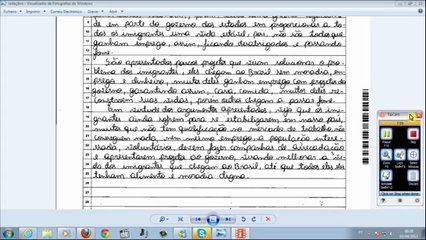 redações - Visualizador de Fotografias do Windows
Arquivo
Imprimir
Correio Electrónico
Gravar
Abrir
de em parte do governo dos estados em proporcionar a to-
dos os imigrantes uma vida estável, por, não são todos que
ganham emprego, assim, ficando desabrigados e passando
fome.
São apresentados poucos projetos que visam solucionar o pro-
blema dos imigrantes, eles chegam ao Brasil sem moradia, em-
prego e dinheiro, muitos deles ganham emprego com projetos do
governo, garantindo assim, casa, comida, muitos deles re-
constroem suas vidas, porém outros chegam a passar fome.
Em virtude dos argumentos apresentados, vejo que os imi-
grantes ainda sofrem para se estabilizarem em nosso país,
muitos que não tem qualificação no mercado de trabalho, não
conseguem nada, nem mesmo emprego, a população interes-
sada, voluntários, devem fazer campanhas de arrecadação
e apresentarem projetos ao governo, visando melhorar a vi-
da dos imigrantes que chegam ao Brasil, até que todos eles ob-
tenham alimento e moradia digna.
PT